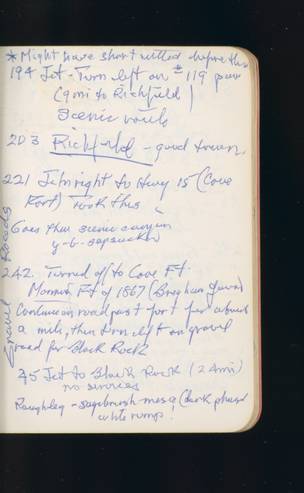 * Might have short cutted before this
194 Jct - Turn left on #119 pave
(9mi to Richfield)
Scenic route
203 Richfield - good town.
221 Jct right to Hwy 15 (Cove
Fort) Took this
Goes thru scenic canyon
y-b. sapsucker
242. Turned off to Cove Ft.
Mormon Ft of 1867 (Brigham Young)
Continue on road past fort for about
a mile, then turn left on gravel
road for Black Rock
Gravel Roads
45 Jct to Black Rock (24mi)
no services
Roughleg - sagebrush mesa (dark phase
white rump.